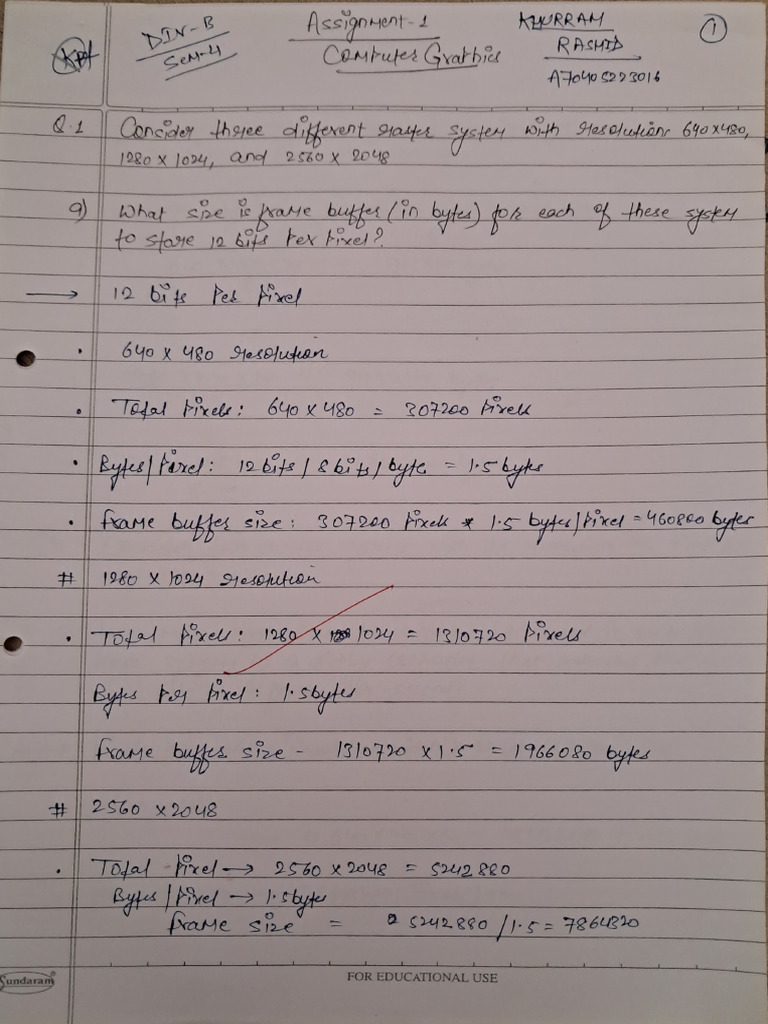 DIV-B
SEM-4
Assignment-1
Computer Grathics
KHURRAM
RASHID
A70405223016
1
Q.1 Consider three different raster system with resolutions 640x480,
1280 x 1024, and 2560 x 2048
a) What size is frame buffer (in bytes) for each of these system
to store 12 bits Per Pixel?
→ 12 bits Per pixel
• 640 x 480 resolution
• Total Pixels: 640 x 480 = 307200 Pixels
• Bytes/Pixel: 12 bits / 8 bits / byte = 1.5 bytes
• frame buffer size: 307200 Pixels * 1.5 bytes/Pixel = 460800 bytes
# 1280 x 1024 resolution
• Total Pixels: 1280 x 1024 = 1310720 Pixels
Bytes Per Pixel: 1.5 bytes
frame buffer size - 1310720 x 1.5 = 1966080 bytes
# 2560 x 2048
• Total Pixel → 2560 x 2048 = 5242880
Bytes/Pixel → 1.5 bytes
frame size = 5242880 / 1.5 = 7864320
Sundaram
FOR EDUCATIONAL USE